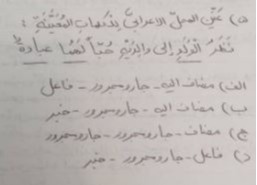 ۵) عَيِّن المحلّ الاعرابيّ لِلكلماتِ المُعَيَّنَةِ :
نَظَرُ الْوَلَدِ إلی والِدَيْهِ حُبّاً لَهُما عِبادَةٌ
الف) مضاف الیه - جار و مجرور - فاعل
ب) مضاف الیه - جار و مجرور - خبر
ج) مضاف - جار و مجرور - جار و مجرور
د) فاعل - جار و مجرور - خبر